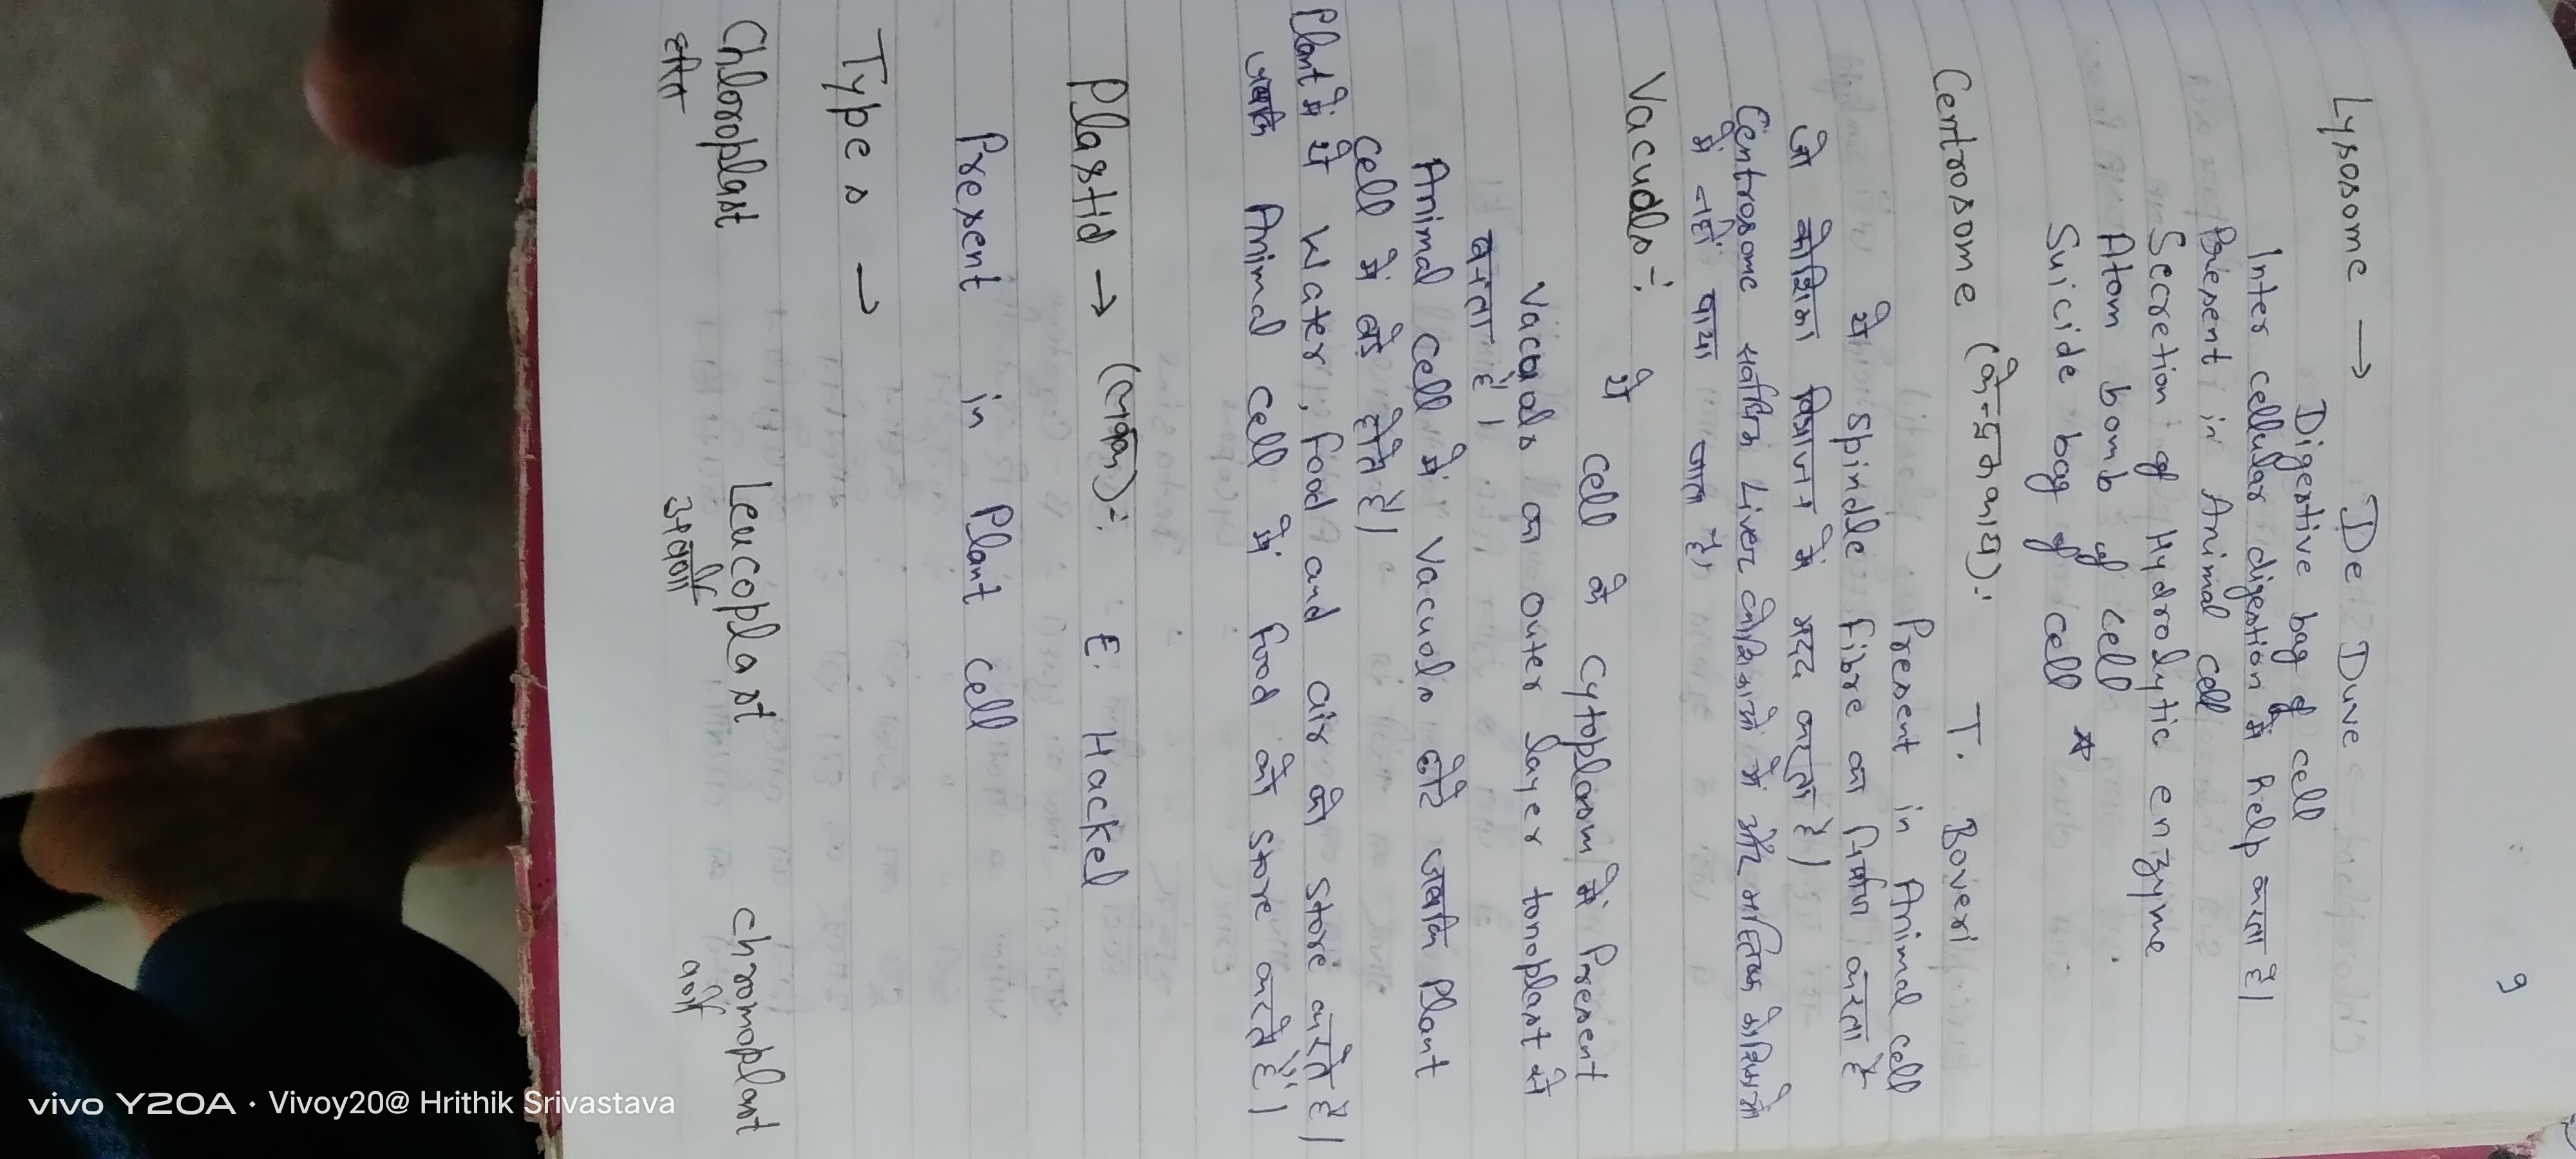 9
Lysosome → De Duve
Digestive bag of cell
Inter cellular digestion में help करता है।
Present in Animal cell
Secretion of Hydrolytic enzyme
Atom bomb of cell
Suicide bag of cell ☆
Centrosome (केन्द्रककाय):- T. Boveri
Present in Animal cell
ये spindle fibre का निर्माण करता है
जो कोशिका विभाजन में मदद करता है।
Centrosome सर्वाधिक Liver कोशिकाओं में और मस्तिष्क कोशिकाओं
में नहीं पाया जाता है।
Vacuols :-
ये cell के cytoplasm में Present
Vacuols का outer layer tonoplast से
बनता है।
Animal cell में Vacuols छोटे जबकि Plant
cell में बड़े होते है।
Plant में ये Water, food and air को store करते है।
जबकि Animal cell में food को store करते हैं।
Plastid → (लवक) :- E. Hackel
Present in Plant cell
Types →
Chloroplast Leucoplast chromoplast
हरित अवर्णी वर्णी
vivo Y20A · Vivoy20@ Hrithik Srivastava